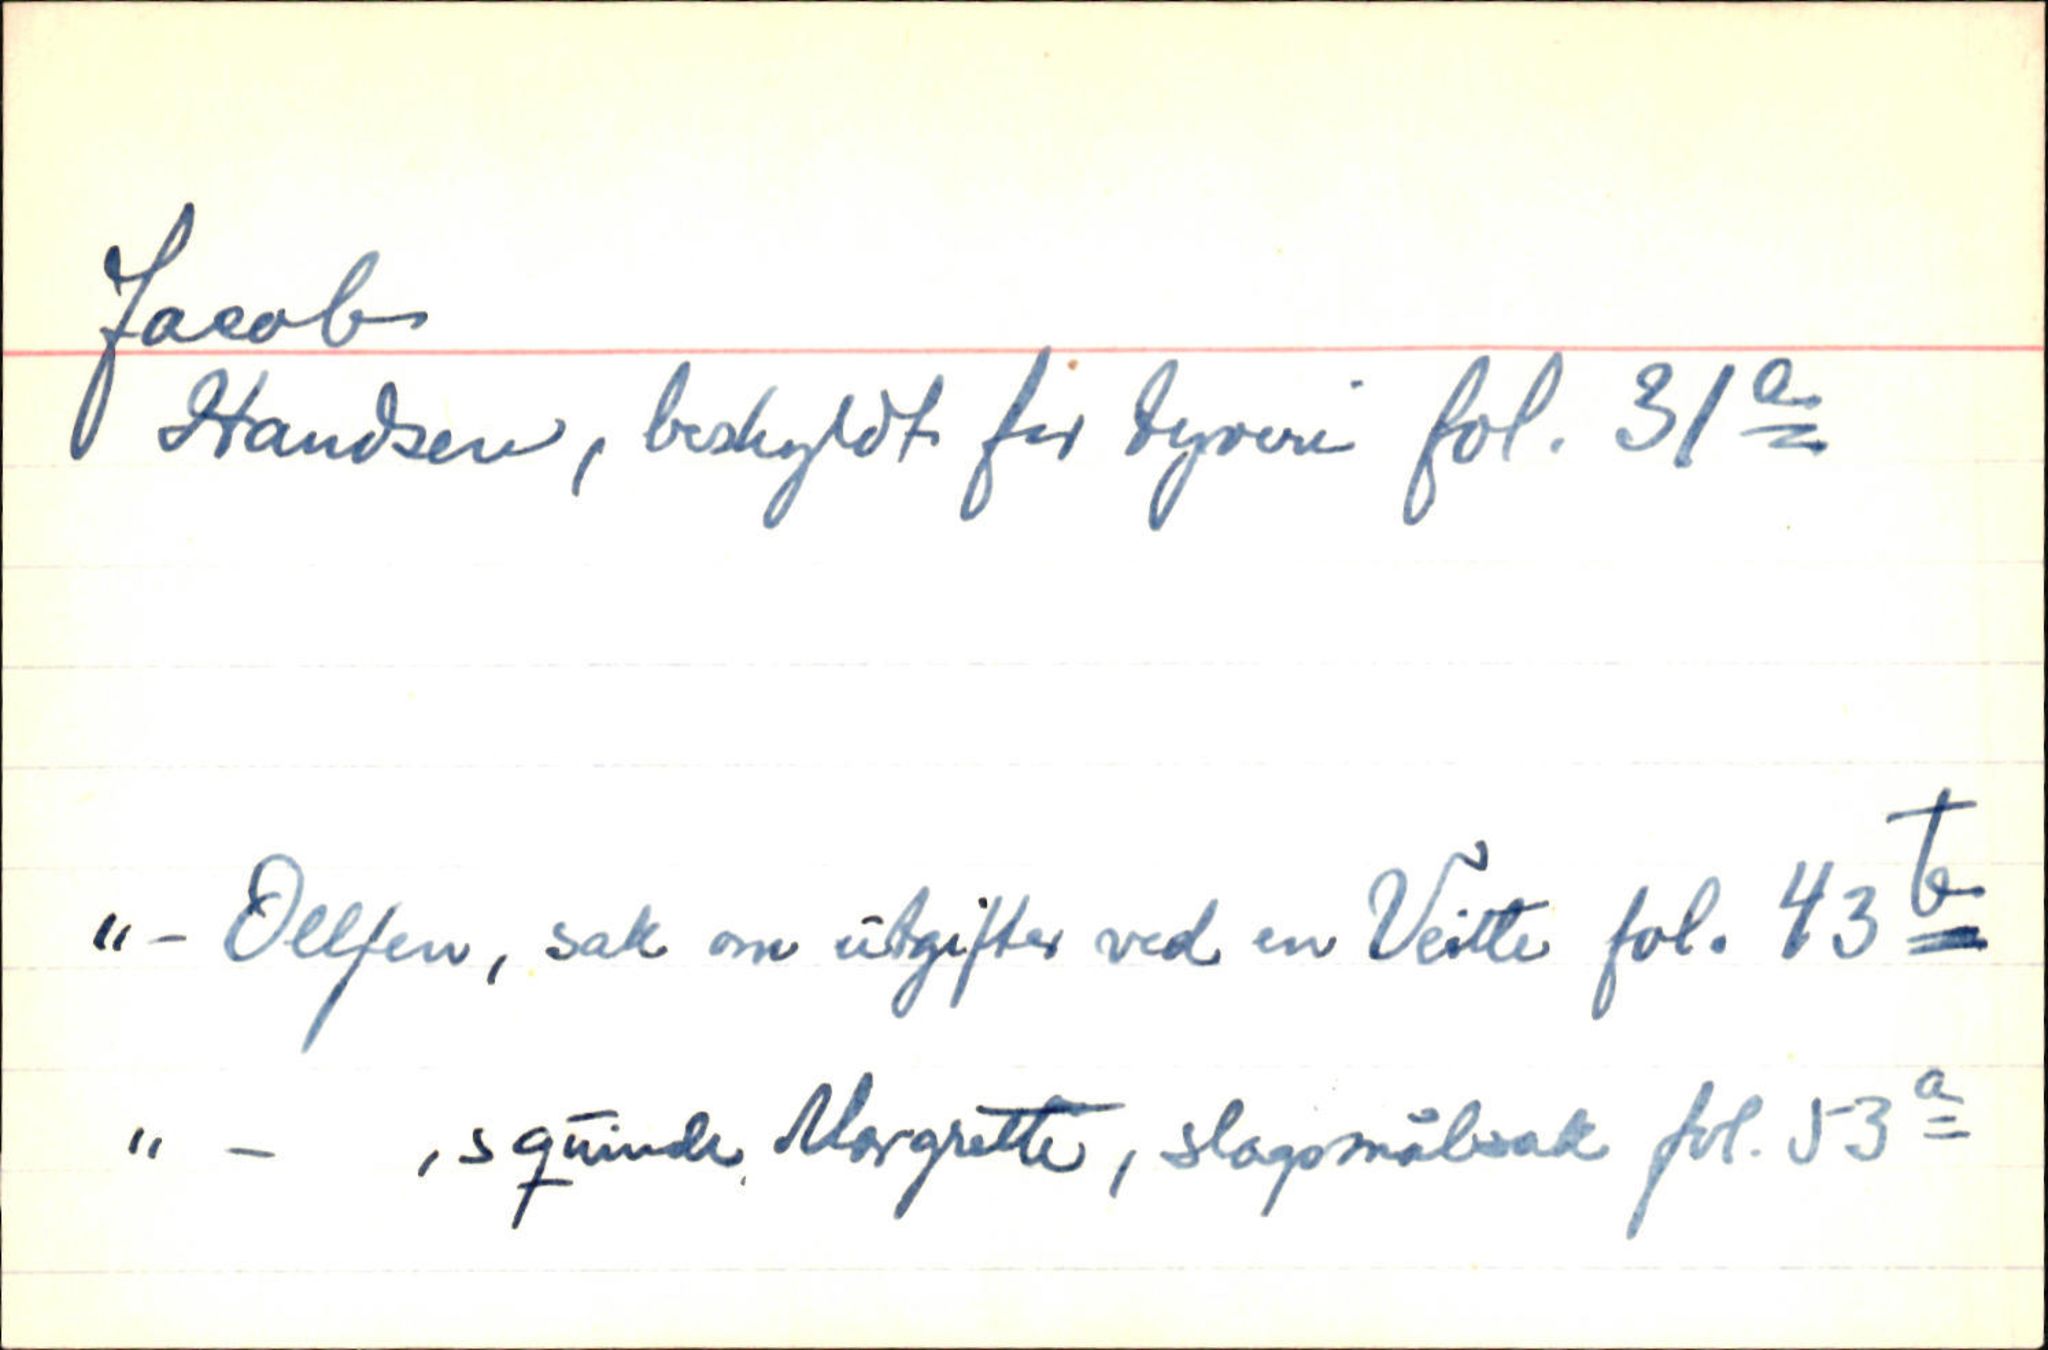 Jacob
Handsen, beskyldt for tyveri fol. 31a
"- Ollsen, sak om utgifter ved en Veitte fol. 43b
" - , s quinde Margrette, slagsmålsak fol. 53a